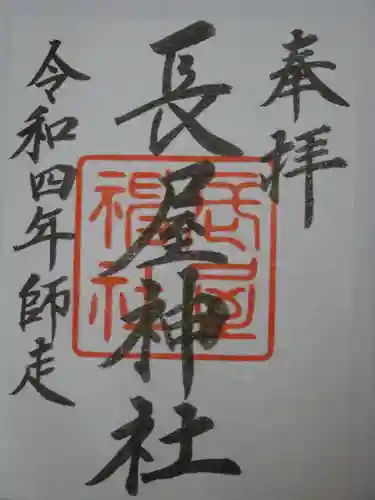 奉拝
長屋神社
長屋神社
令和四年師走